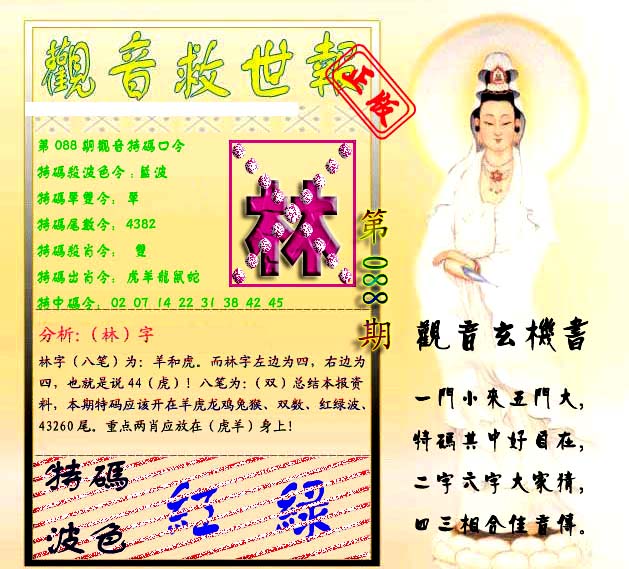 觀音救世報
正版
第 088 期觀音特碼口令
特碼殺波色令：藍波
特碼單雙令： 單
特碼尾數令： 4382
特碼殺肖令： 雙
特碼出肖令： 虎羊龍鼠蛇
特中碼令： 02 07 14 22 31 38 42 45
林
第 088 期
分析:（林）字
林字（八笔）为：羊和虎。而林字左边为四，右边为
四，也就是说 44（虎）！八笔为：（双）总结本报资
料，本期特码应该开在羊虎龙鸡兔猴、双数、红绿波、
43260 尾。重点两肖应放在（虎羊）身上！
特碼
波色
紅 綠
觀音玄機書
一門小來五門大，
特碼其中好自在，
二字六字大家猜，
四三相合佳音傳。